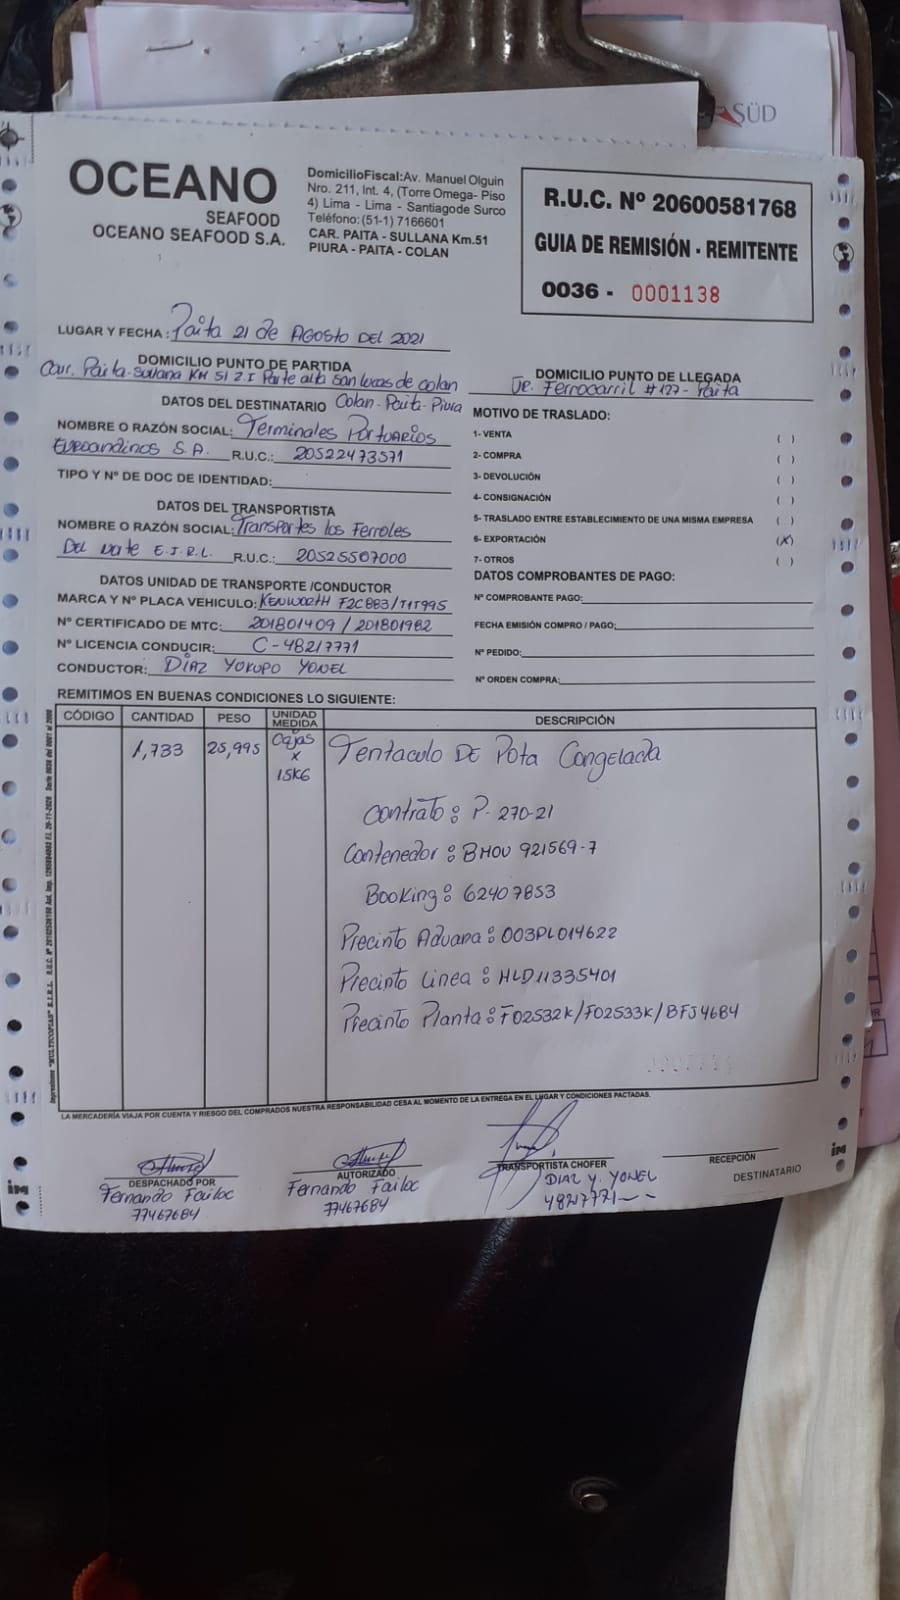 SÜD
OCEANO
SEAFOOD
OCEANO SEAFOOD S.A.
DomicilioFiscal:Av. Manuel Olguin
Nro. 211, Int. 4, (Torre Omega- Piso
4) Lima - Lima - Santiagode Surco
Teléfono:(51-1) 7166601
CAR. PAITA - SULLANA Km.51
PIURA - PAITA - COLAN
R.U.C. Nº 20600581768
GUIA DE REMISIÓN - REMITENTE
0036 - 0001138
LUGAR Y FECHA : Paita 21 de Agosto DEL 2021
DOMICILIO PUNTO DE PARTIDA
Car. Paita-Sullana KM 51 Z.I Parte alta San Lucas de Colan
Colan-Paita-Piura
DOMICILIO PUNTO DE LLEGADA
Jr. Ferrocarril #127 - Paita
DATOS DEL DESTINATARIO
NOMBRE O RAZÓN SOCIAL: Terminales Portuarios
Euroandinos S.A. R.U.C.: 20522473571
TIPO Y Nº DE DOC DE IDENTIDAD:
DATOS DEL TRANSPORTISTA
NOMBRE O RAZÓN SOCIAL: Transportes los Ferroles
DEL Norte E.I.R.L. R.U.C.: 20525507000
DATOS UNIDAD DE TRANSPORTE /CONDUCTOR
MARCA Y Nº PLACA VEHICULO: KENWORTH F2C883/T1T995
Nº CERTIFICADO DE MTC: 201801409 / 201801982
Nº LICENCIA CONDUCIR: C-48217771
CONDUCTOR: DIAZ YOKUPO YONEL
MOTIVO DE TRASLADO:
1- VENTA ( )
2- COMPRA ( )
3- DEVOLUCIÓN ( )
4- CONSIGNACIÓN ( )
5- TRASLADO ENTRE ESTABLECIMIENTO DE UNA MISMA EMPRESA ( )
6- EXPORTACIÓN (X)
7- OTROS ( )
DATOS COMPROBANTES DE PAGO:
Nº COMPROBANTE PAGO:
FECHA EMISIÓN COMPRO / PAGO:
Nº PEDIDO:
Nº ORDEN COMPRA:
REMITIMOS EN BUENAS CONDICIONES LO SIGUIENTE:
CÓDIGO CANTIDAD PESO UNIDAD MEDIDA DESCRIPCIÓN
1,733 25,995 Cajas x 15KG Tentaculo DE Pota Congelada
Contrato: P-270-21
Contenedor: BMOU 921569-7
Booking: 62407853
Precinto Aduana: 003PL014622
Precinto Linea: HLD11335401
Precinto Planta: F02532K/F02533K/BFJ4684
LA MERCADERÍA VIAJA POR CUENTA Y RIESGO DEL COMPRADOS NUESTRA RESPONSABILIDAD CESA AL MOMENTO DE LA ENTREGA EN EL LUGAR Y CONDICIONES PACTADAS.
DESPACHADO POR
Fernando Failoc
77467684
AUTORIZADO
Fernando Failoc
77467684
TRANSPORTISTA CHOFER
DIAZ Y. YONEL
RECEPCIÓN
DESTINATARIO
im
im